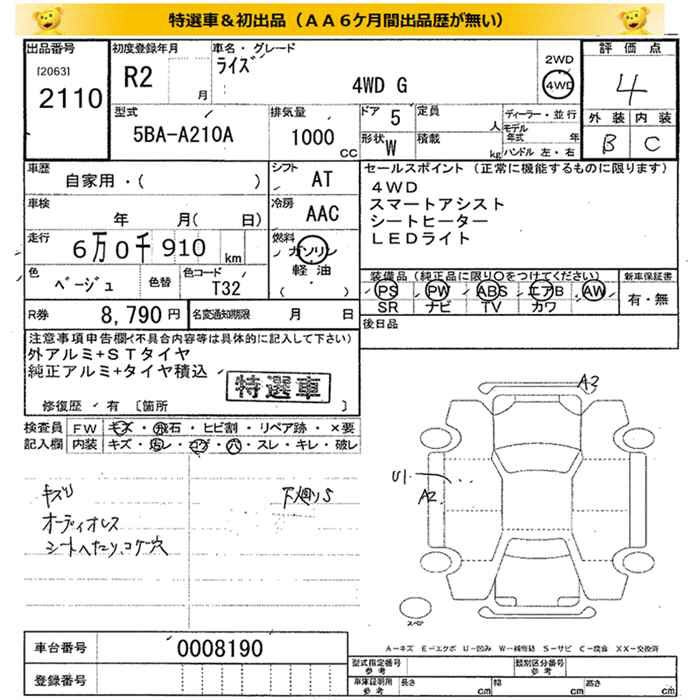 特選車＆初出品（ＡＡ６ケ月間出品歴が無い）
出品番号 初度登録年月 車名・グレード 評価点
[2063] R2 ライズ 2WD 4
2110 月 4WD G 4WD
外装 内装
型式 排気量 ドア 5 定員 人 ディーラー・並行 B C
5BA-A210A 1000 CC 形状 W 積載 kg モデル年式 年
ハンドル 左・右
車歴 シフト セールスポイント（正常に機能するものに限ります）
自家用・（ ） AT ４ＷＤ
車検 冷房 スマートアシスト
年 月（ 日） AAC シートヒーター
走行 燃料 ＬＥＤライト
6万0千910 km ガソリン
軽油
（ ・ ）
色 色替 色コード 装備品（純正品に限り○をつけてください） 新車保証書
ベージュ T32 PS PW ABS エアB AW 有・無
SR ナビ TV カワ
R券 8,790円 名変通知期限 月 日 後日品
注意事項申告欄（不具合内容等は具体的に記入して下さい）
外アルミ＋ＳＴタイヤ
純正アルミ＋タイヤ積込
特選車
修復歴 ・ 有 〔箇所 〕
検査員 ＦＷ キズ・飛石・ヒビ割・リペア跡・×要
記入欄 内装 キズ・汚レ・コゲ・穴・スレ・キレ・破レ
キズリ 下廻りS
オーディオレス
シートヘたり、コゲ穴
A2
U1
A2
スペア
車台番号 0008190
登録番号
A－キズ E－エクボ U－凹み W－補修跡 S－サビ C－腐食 XX－交換済
型式指定番号 参考 類別区分番号 参考
車庫証明用 参考 長さ cm 幅 cm 高さ cm